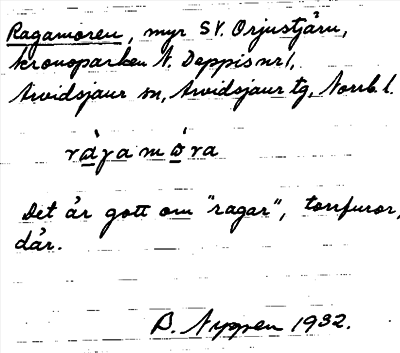 Ragamoren, myr SV. Orjustjärn,
kronoparken N. Deppis nr 1,
Arvidsjaur sn, Arvidsjaur tg, Norrb. l.
ràγa mɷ́ra
Det är gott om "ragar", torrfuror,
där.
B. Nyppen 1932.